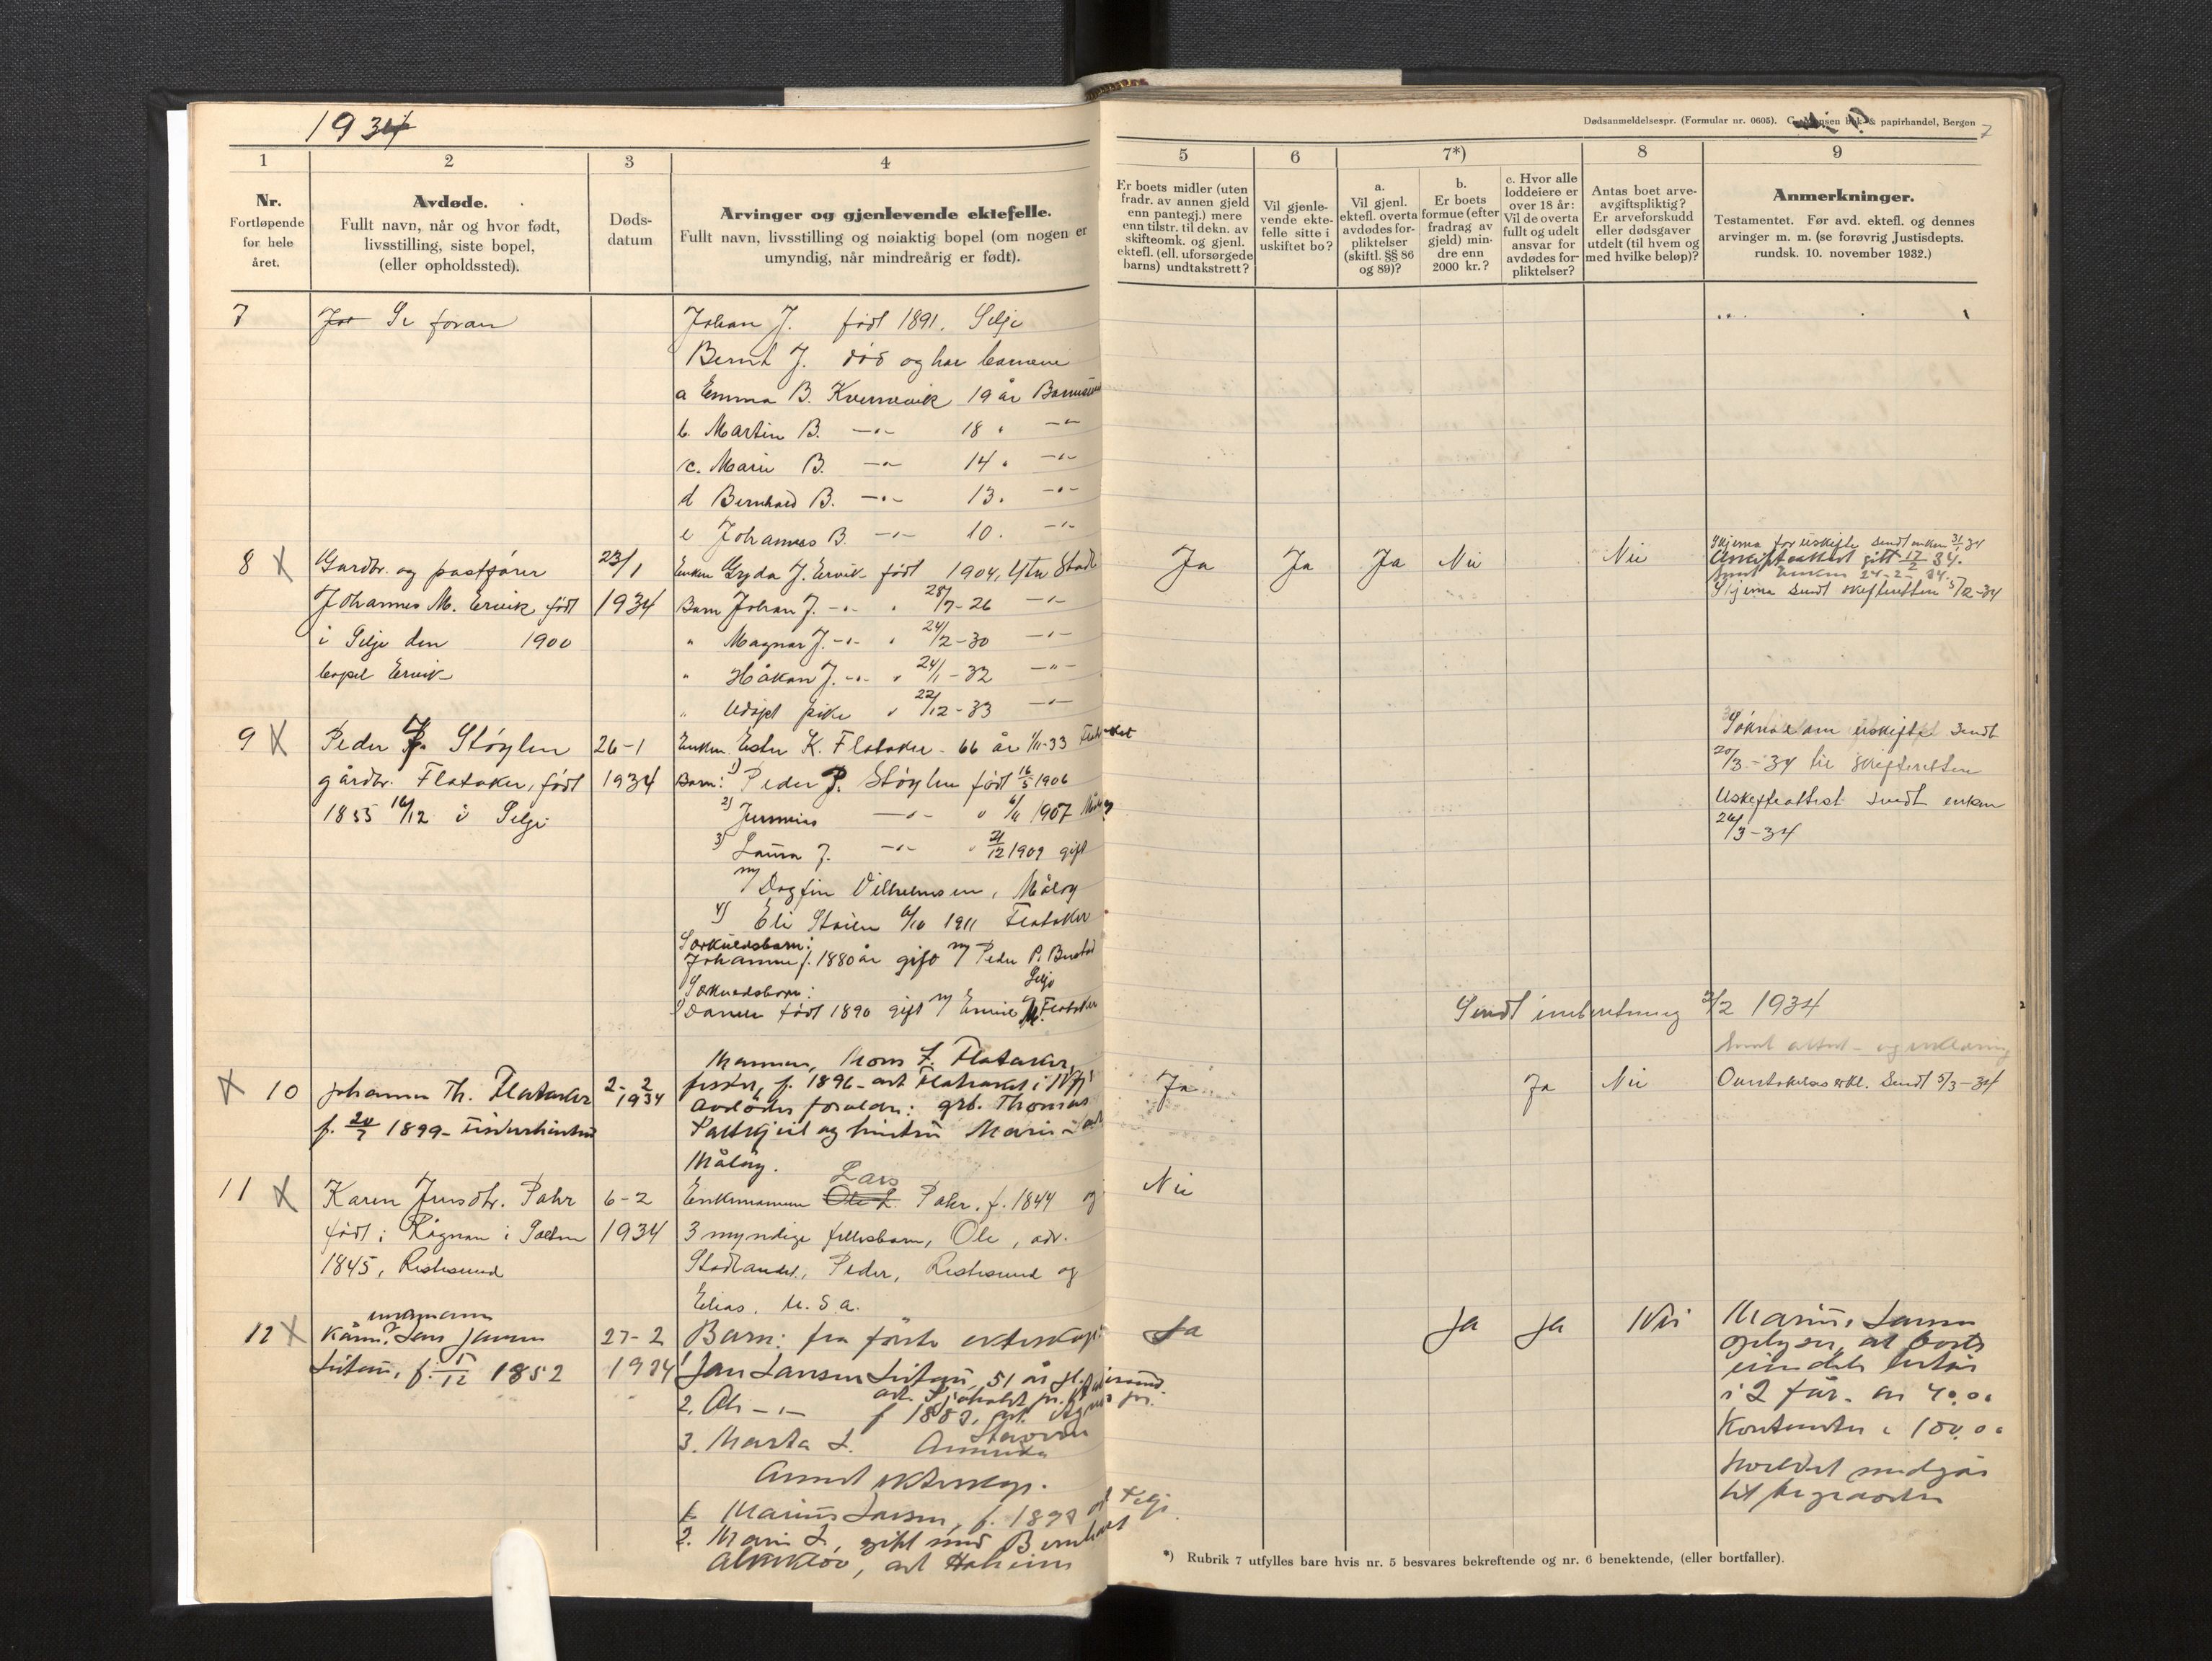 1934
1
2
3
4
Nr.
Fortløpende
for hele
året.
Avdøde.
Fullt navn, når og hvor født,
livsstilling, siste bopel,
(eller opholdssted).
Døds-
datum
Arvinger og gjenlevende ektefelle.
Fullt navn, livsstilling og nøiaktig bopel (om nogen er
umyndig, når mindreårig er født).
7 Se foran
Johan J. født 1891. Selje
Bernt J. død og har barnene
a Emma B. Kvernevik 19 år
b. Martin B. -"- 18 " -"-
c. Marie B. -"- 14 " -"-
d Bernhard B. -"- 13 " -"-
e Johannes B. -"- 10 " -"-
8 X Gardbr. og postfører 23/1 Enken Gyda J. Ervik født 1904, Ytre Stadt
Johannes M. Ervik født 1934 Barn Johan J. -"- " 28/7-26 -"-
i Selje den 1900 " Magnar J. -"- " 24/2-30 -"-
bopel Ervik " Håkon J. -"- " 24/1-32 -"-
" Udøpt pike " 22/12-33 -"-
9 X Peder J. Støylen 26-1 Enken Ester K. Flatøker 66 år 1/11-33
gårdbr. Flatøker, født 1934 Barn: 1) Peder P. Støylen født 16/5 1906
1855 16/12 i Selje 2) Jeremias -"- " 6/4 1907
3) Laura J. -"- " 21/12 1909 gift
m/ Dagfin Vilhelmsen, Måløy
4) Eli Støilen 6/10 1911 Flatøker
Særkuldsbarn:
Johanne f. 1880 år gift m/ Peder P. Burstad
Selje
Særkuldsbarn:
født 1890 gift m/ Flatøker
10 Johanna Th. Flatøker 2-2 1934
Mannen, Mons Z. Flatøker,
fisker, f. 1896
f. 20/7 1899
avdødes foreldre: grb. Thomas
og hustru Marie
Måløy.
11 X Karen Jensdtr. Pahr 6-2 Enkemannen Lars Ole L. Pahr, f. 1844 og
født i Rognan i Salten 1934 3 myndige fellesbarn, Ole, adr.
1845, Ristesund Stadlandet, Peder, Ristesund og
Elias. U.S.a.
12 X ungmann
Lars Jansen 27-2 Barn: fra første ekteskap:
f. 5/12 1852 1934 1 Jan Larsen 51 år gl.
2. Ole -"- f 1883,
3. Marta L.
Annet ekteskap.
1. Marius Larsen, f. 1898 Selje
2. Marie L, gift med Bernhard
Almklov,
Dødsanmeldelsespr. (Formular nr. 0605). & papirhandel, Bergen
7
5
6
7*)
8
9
Er boets midler (uten
fradr. av annen gjeld
enn pantegj.) mere
enn tilstr. til dekn. av
skifteomk. og gjenl.
ektefl. (ell. uforsørgede
barns) undtakstrett?
Vil gjenle-
vende ekte-
felle sitte i
uskiftet bo?
a.
Vil gjenl.
ektefl. overta
avdødes for-
pliktelser
(skiftl. §§ 86
og 89)?
b.
Er boets
formue (efter
fradrag av
gjeld) min-
dre enn
2000 kr.?
c. Hvor alle
loddeiere er
over 18 år:
Vil de overta
fullt og udelt
ansvar for
avdødes for-
pliktelser?
Antas boet arve-
avgiftspliktig?
Er arveforskudd
eller dødsgaver
utdelt (til hvem og
med hvilke beløp)?
Anmerkninger.
Testamentet. Før avd. ektefl. og dennes
arvinger m. m. (se forøvrig Justisdepts.
rundsk. 10. november 1932.)
Skjema for uskifte sendt enken 31/1 34
Ja Ja Ja Nei Nei Uskifteattest gitt 17/2 34.
Sendt Enken 24-2-34.
Skjema sendt skifteretten 5/2-34
Søknad om uskifte sendt
20/3-34 til skifteretten
Uskifteattest sendt enken
26/3-34
Sendt innberetning 3/2 1934
Ja Ja Nei Overtakelses erkl. Sendt 5/3-34
Nei
Ja Ja Ja Nei Marius Larsen
oplyser, at boets
eiendeler består
i 2 får. kr 40.00
Kontanter " 100.00
hvilket medgår
til begravelsen
*) Rubrik 7 utfylles bare hvis nr. 5 besvares bekreftende og nr. 6 benektende, (eller bortfaller).